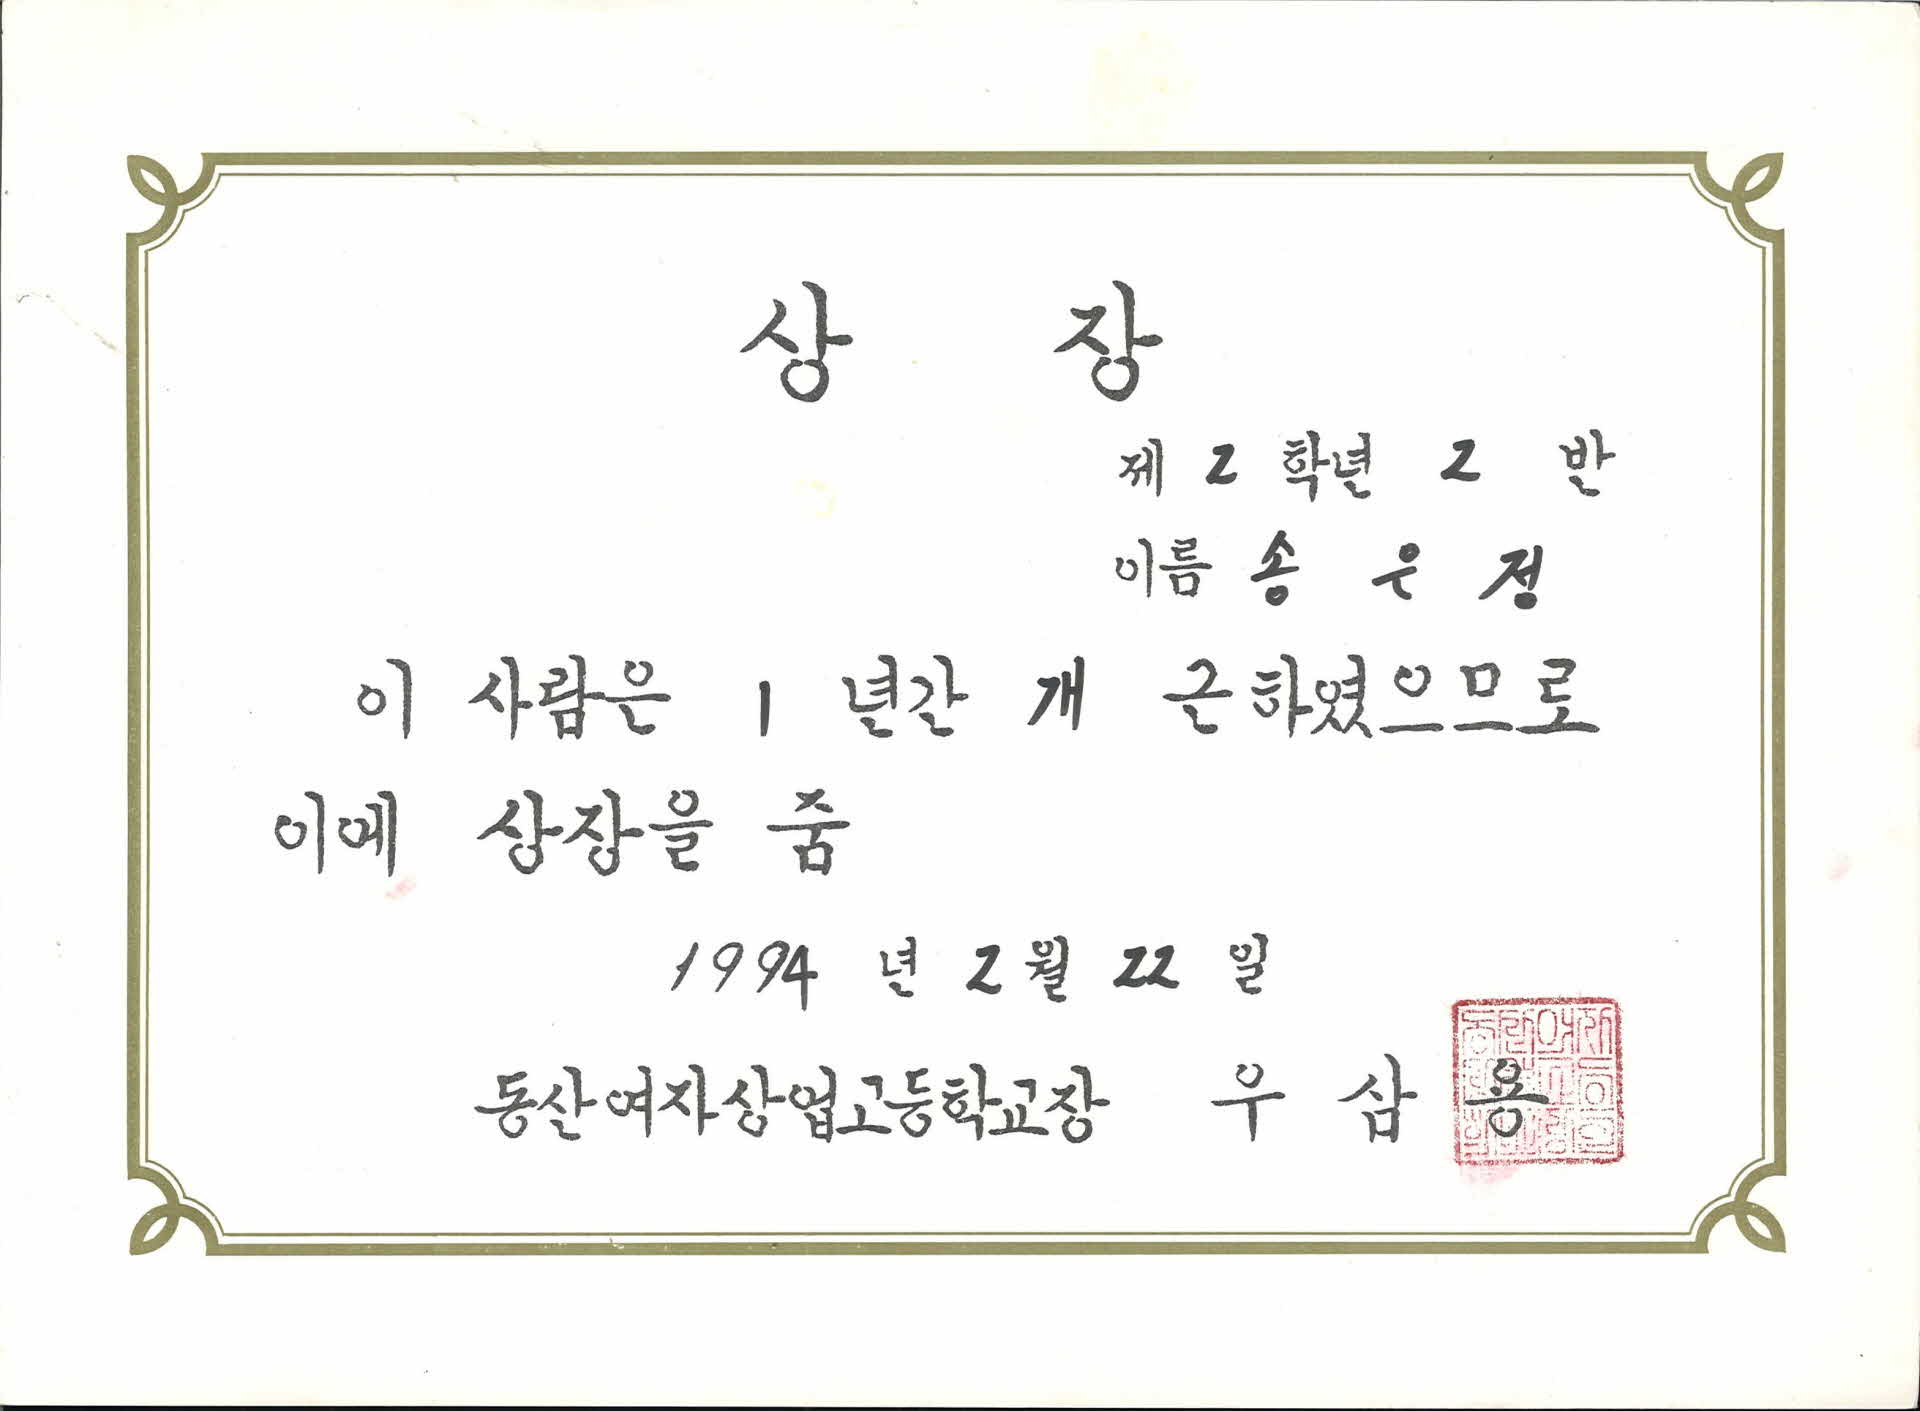 상 장
제 2 학년 2 반
이름 송 은 정
이 사람은 1 년간 개 근하였으므로
이에 상장을 줌
1994 년 2 월 22 일
동산여자상업고등학교장 우 삼 용